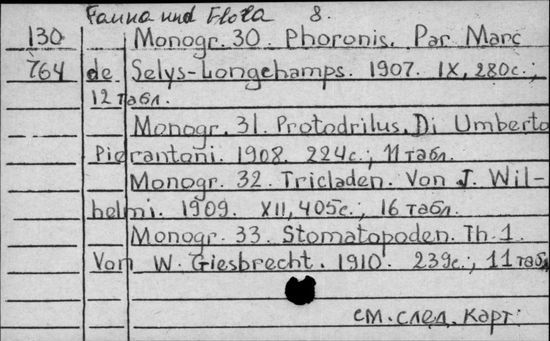 Fauna und Flora 8.
130 Monogr. 30. Phoronis. Par Marc
764 de Selys-Longchamps. 1907. IX, 280c.;
12 табл.
Monogr. 31. Protodrilus. Di Umberto
Pierantoni. 1908. 224c.; 11 табл.
Monogr. 32. Tricladen. Von J. Wil-
helmi. 1909. XII, 405c.; 16 табл.
Monogr. 33. Stomatopoden. Th. 1.
Von W. Giesbrecht. 1910. 239c.; 11 табл
см. след. карт.